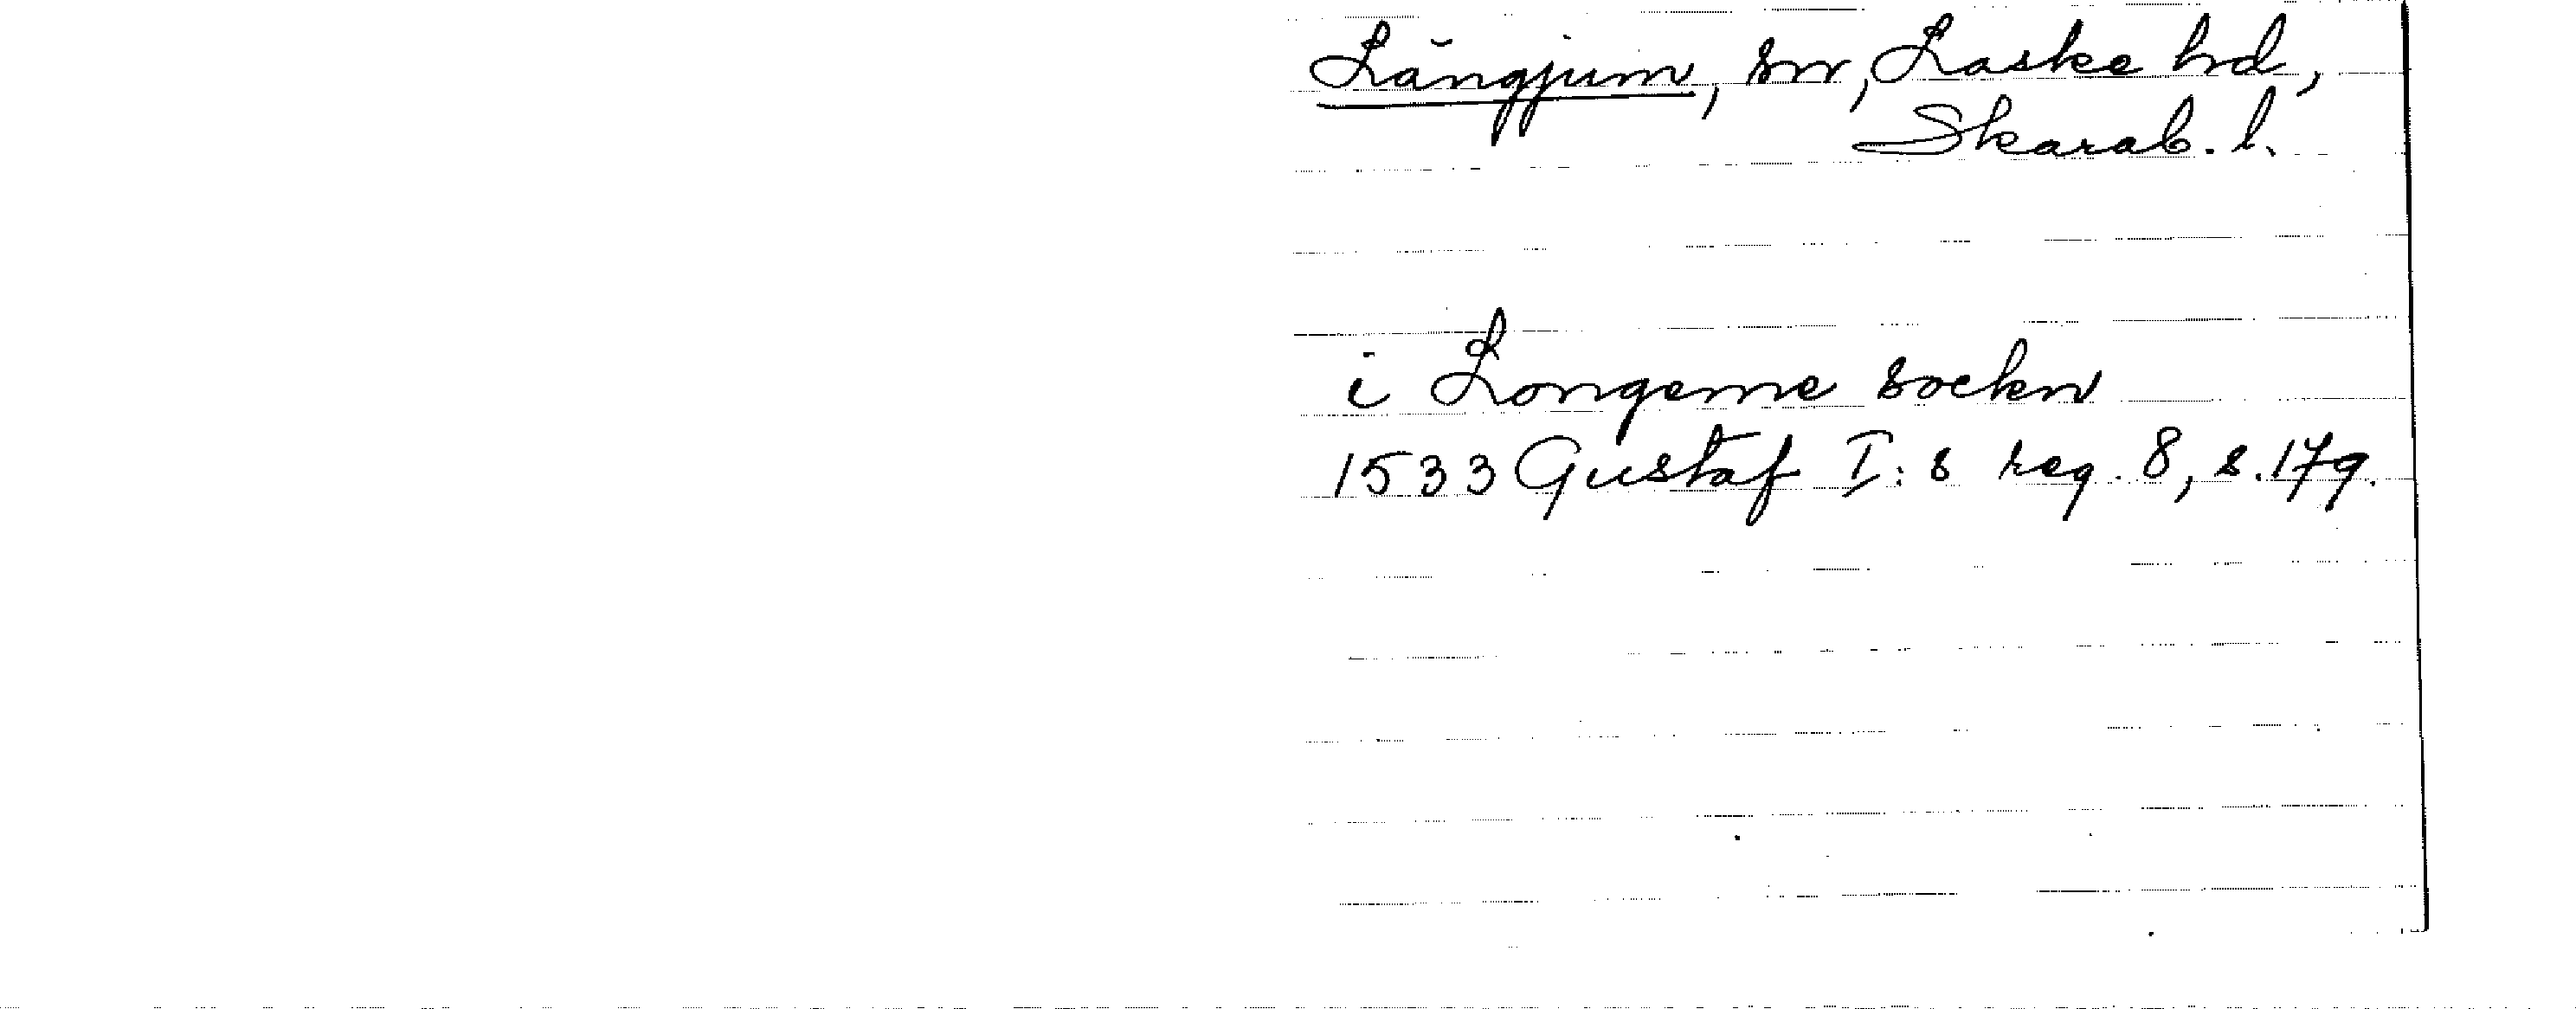 Långjum, sn, Laske hd,
Skarab. l.
i Longeme sockn
1533 Gustaf I:s reg. 8, s. 179.